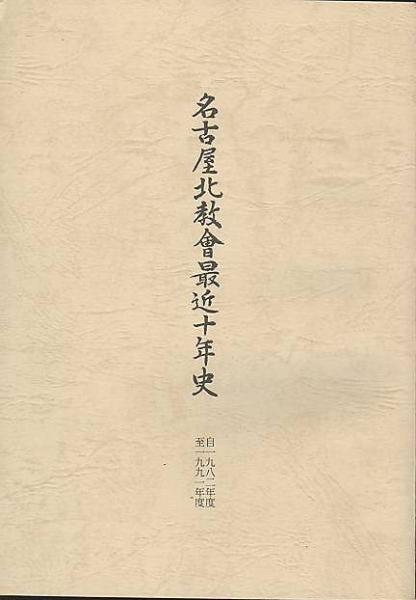 名古屋北教會最近十年史
自一九八二年度
至一九九一年度